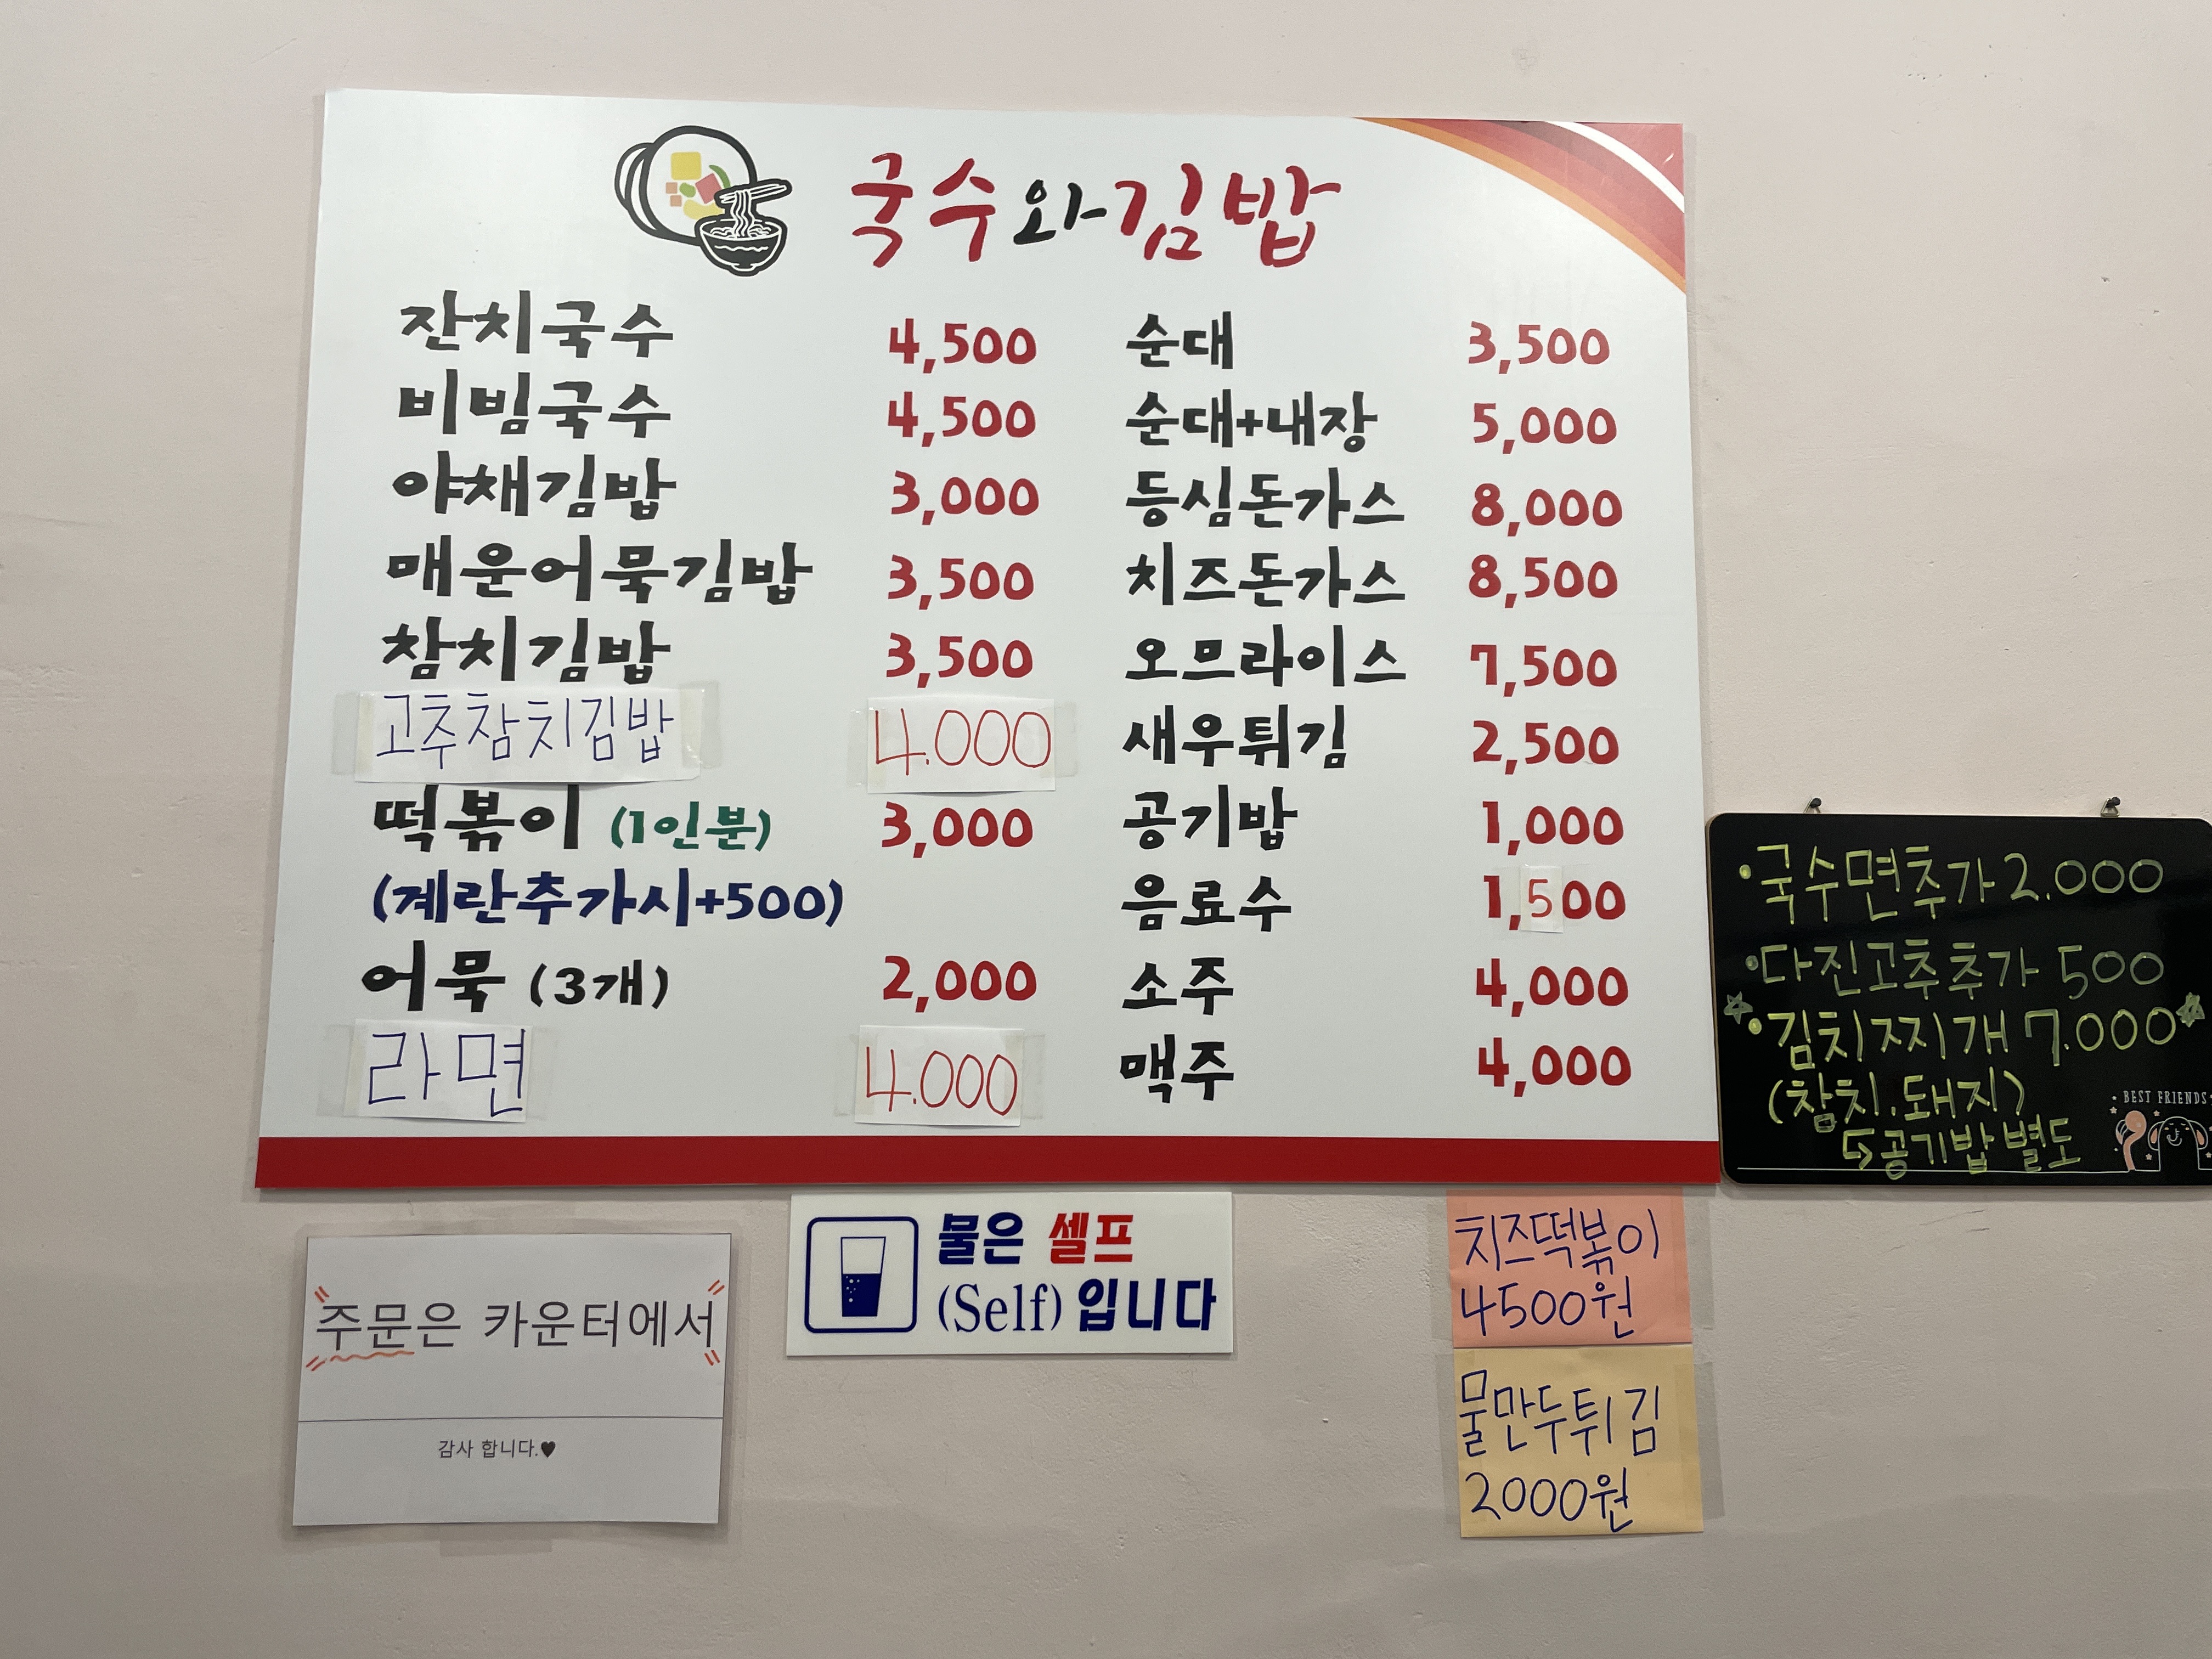 국수와김밥
잔치국수 4,500
비빔국수 4,500
야채김밥 3,000
매운어묵김밥 3,500
참치김밥 3,500
고추참치김밥 4.000
떡볶이 (1인분) 3,000
(계란추가시+500)
어묵 (3개) 2,000
라면 4.000
순대 3,500
순대+내장 5,000
등심돈가스 8,000
치즈돈가스 8,500
오므라이스 7,500
새우튀김 2,500
공기밥 1,000
음료수 1,500
소주 4,000
맥주 4,000
•국수면추가 2.000
•다진고추추가 500
•김치찌개 7.000
(참치.돼지)
↳공기밥 별도
BEST FRIENDS
주문은 카운터에서
감사 합니다.♥
물은 셀프
(Self) 입니다
치즈떡볶이
4500원
물만두튀김
2000원